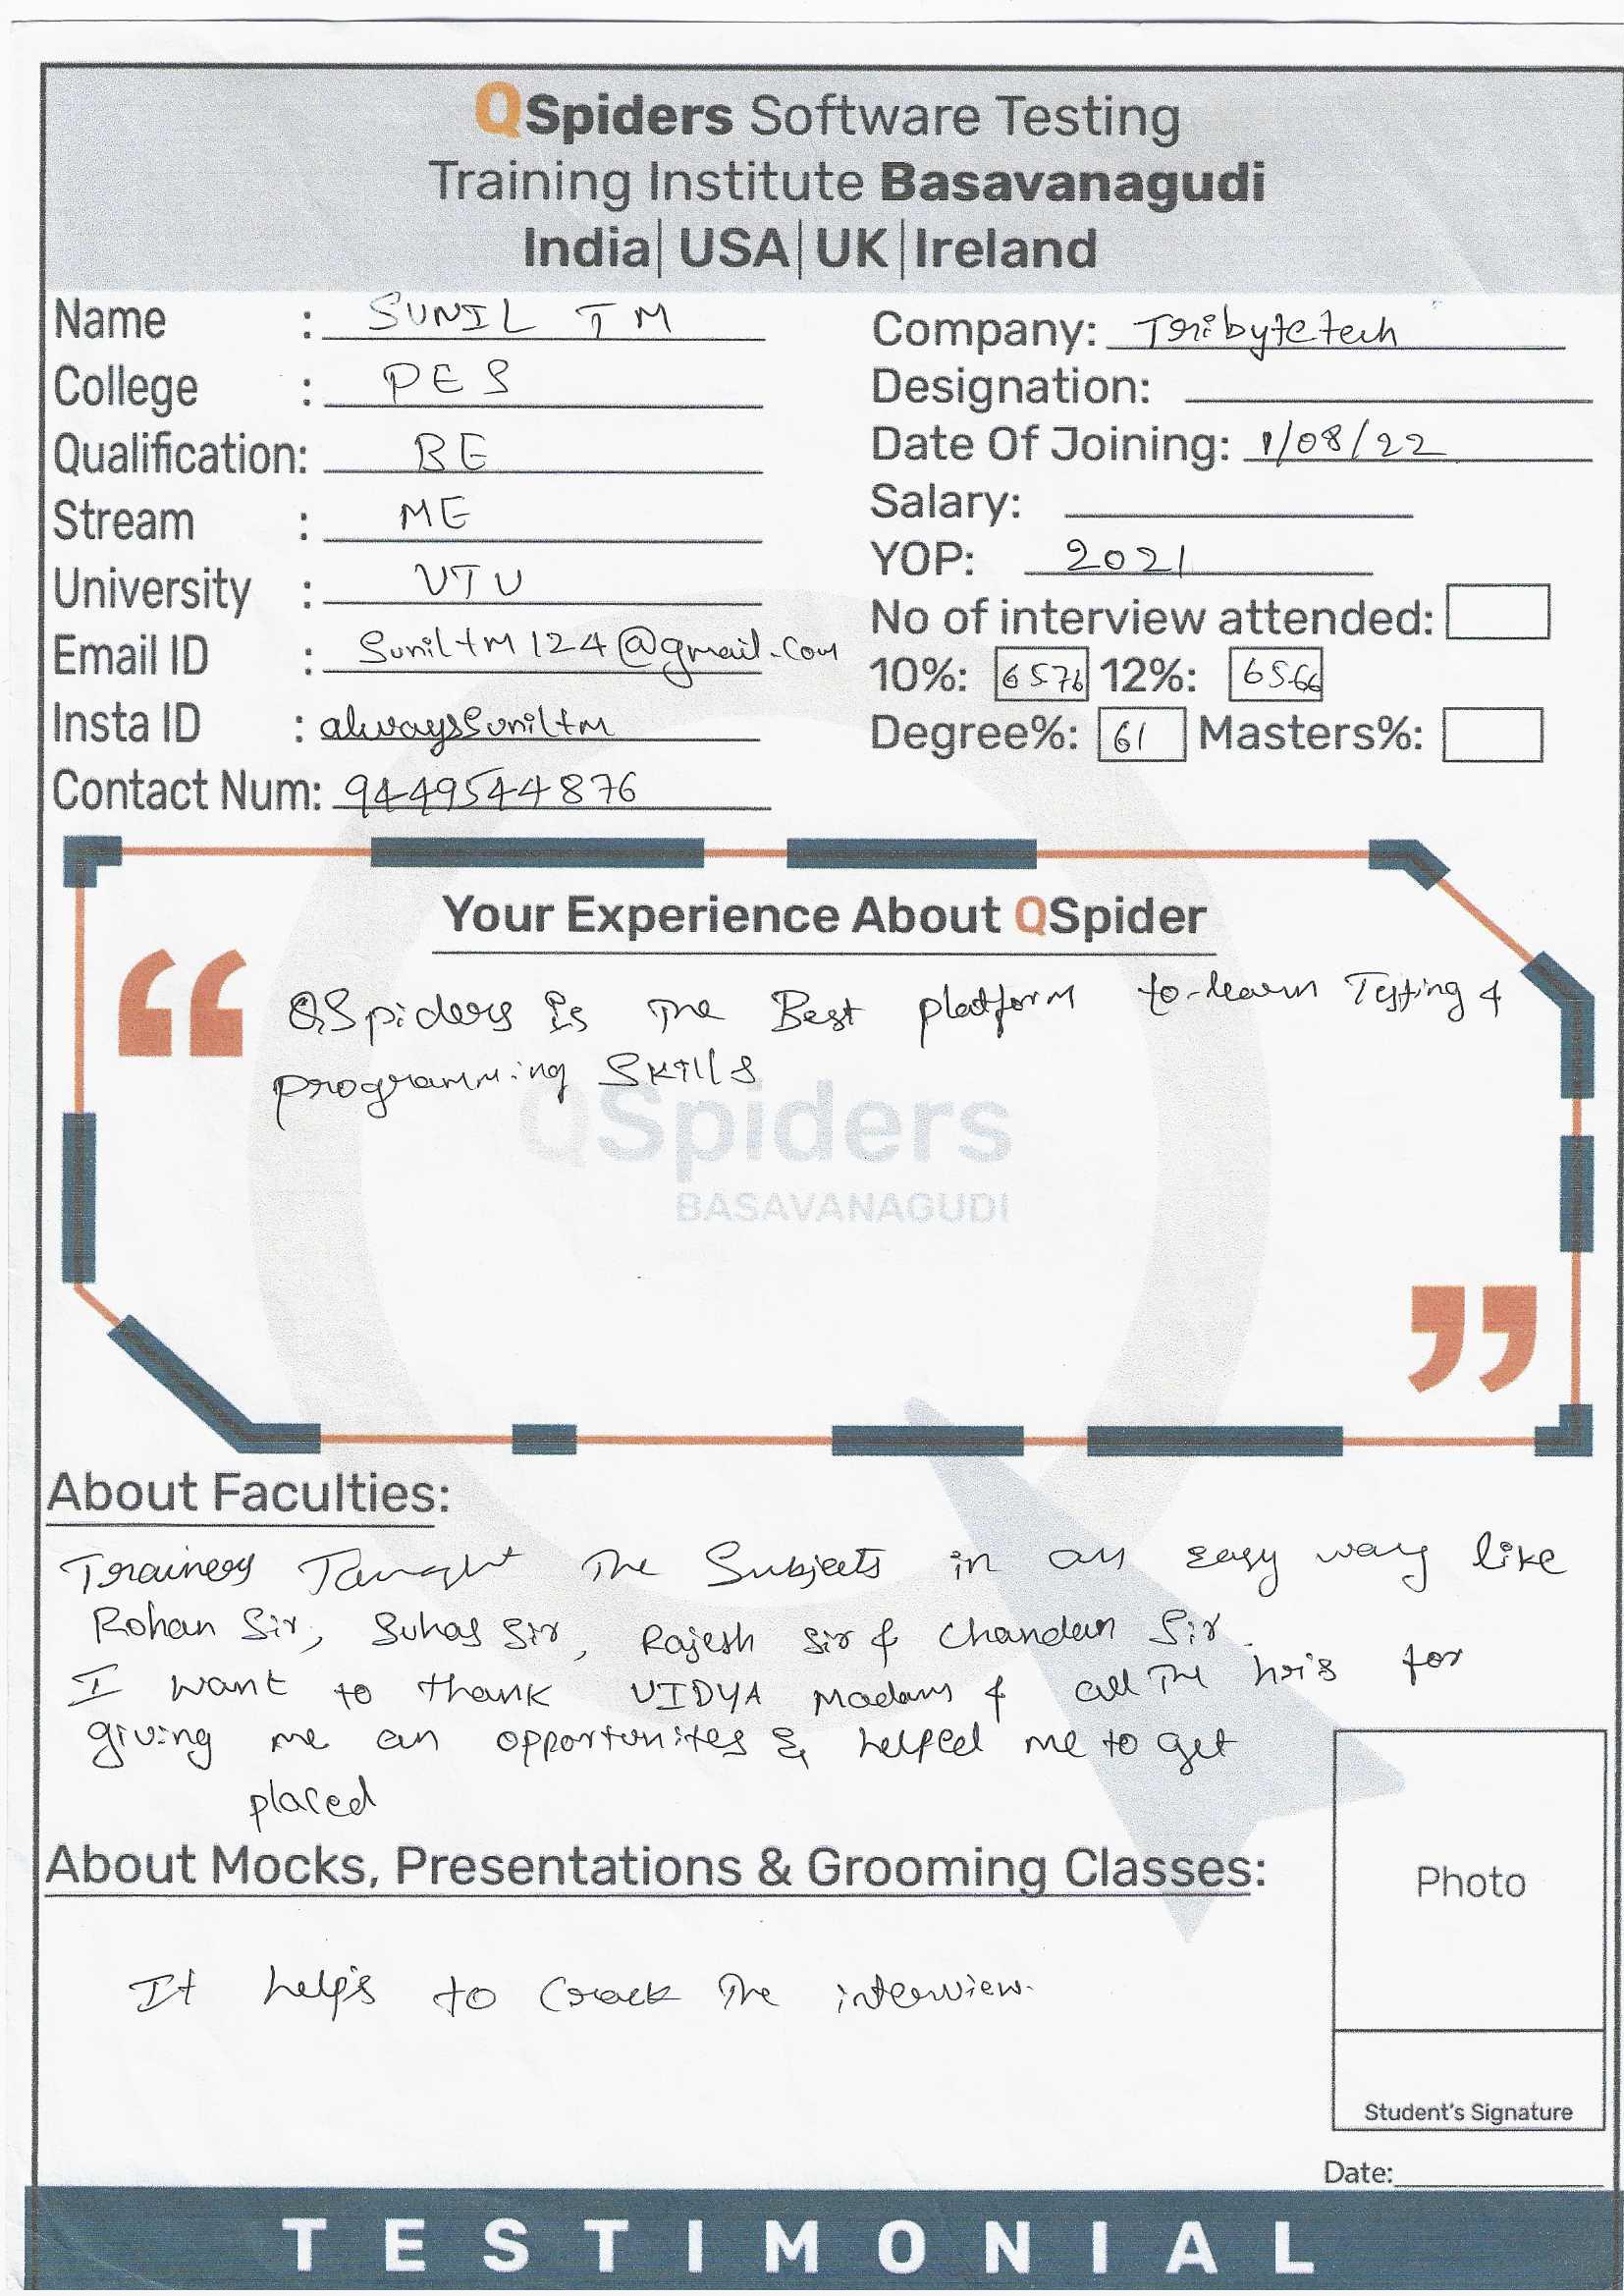 QSpiders Software Testing
Training Institute Basavanagudi
India| USA|UK|Ireland
Name : SUNIL T M
College : PES
Qualification: BE
Stream : ME
University : VTU
Email ID : Suniltm124@gmail.com
Insta ID : alwaysSuniltm
Contact Num: 9449544876
Company: Tribytetech
Designation:
Date Of Joining: 1/08/22
Salary:
YOP: 2021
No of interview attended:
10%: 6576 12%: 65.66
Degree%: 61 Masters%:
Your Experience About QSpider
QSpiders is The Best platform to learn Testing &
programming Skills
QSpiders
BASAVANAGUDI
About Faculties:
Trainers Taught The Subjects in an easy way like
Rohan Sir, Suhas Sir, Rajesh Sir & Chandan Sir.
I want to thank VIDYA Madam & all The hr's for
giving me an opportunites & helped me to get
placed
About Mocks, Presentations & Grooming Classes:
It help's to Crack The interview.
Photo
Student's Signature
Date:
TESTIMONIAL